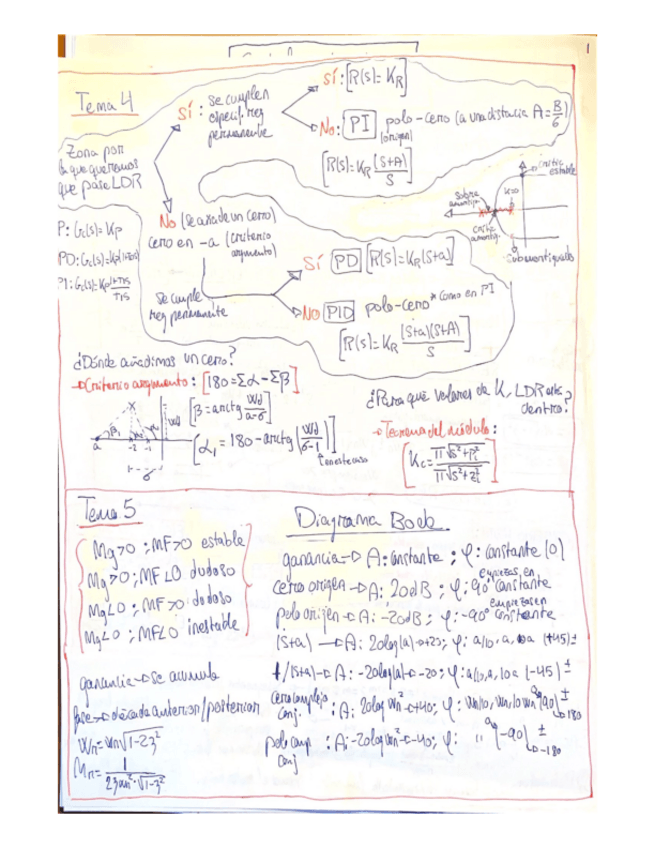 1
Tema 4
Zona por la que queremos que pase LDR
SÍ: se cumplen especif. reg permanente
SÍ: [R(s)=K_R]
No: PI polo-cero (a una distancia A=B/6)
(origen)
[R(s)=K_R (s+A)/s]
No (se añade un cero)
cero en -a (criterio argumento)
se cumple reg permanente
SÍ PD [R(s)=K_R(s+a)]
No PID polo-cero *como en PI
[R(s)=K_R (s+a)(s+A)/s]
P: Gc(s)=Kp
PD: Gc(s)=Kp
PI: Gc(s)=Kp
Critic. estable
Sobre amortig.
K=0
Critic. amortig.
Subamortiguado
¿Dónde añadimos un cero?
→ Criterio argumento: [180=Σα-Σβ]
[β=arctg Wd/a-σ]
[α₁=180-arctg(Wd/σ-1)]
en este caso
a β₁ -2 -1 Wd
σ
¿Para qué valores de K, LDR está dentro?
→ Teorema del módulo:
[Kc= π√s²+p²ᵢ / π√s²+z²ᵢ]
Tema 5
Mg>0 ; MF>0 estable
Mg>0 ; MF<0 dudoso
Mg<0 ; MF>0 dudoso
Mg<0 ; MF<0 inestable
ganancia → se acumula
fase → década anterior/posterior
Wr=wn√1-2ζ²
Diagrama Bode
ganancia → A: constante ; φ: constante (0)
cero origen → A: 20dB ; φ: 90° constante
empiezas en
polo origen → A: -20dB ; φ: -90° constante
empiezas en
(s+a) → A: 20log(a) → +20; φ: a/10, a, 10a (+45)±
1/(s+a) → A: -20log(a) → -20; φ: a/10, a, 10a (-45)±
cero complejo conj. : A: 20log wn² → +40; φ: wn/10, wn, 10wn (90) ± → 180
polo comp conj : A: -20log wn² → -40; φ: " (-90) ± → -180